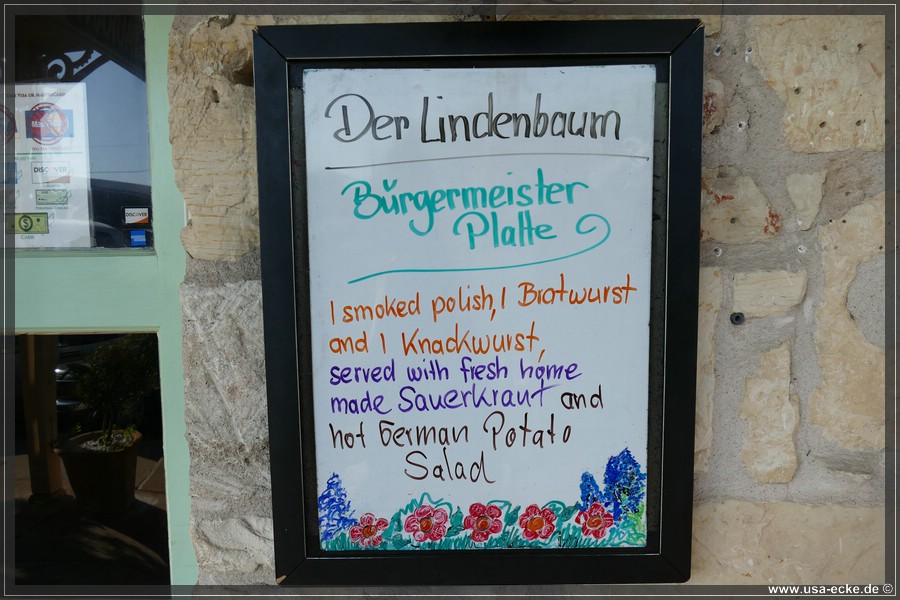 Der Lindenbaum
Bürgermeister
Platte
1 smoked polish, 1 Bratwurst
and 1 Knackwurst,
served with fresh home
made Sauerkraut and
hot German Potato
Salad
DISCOVER
CASH
DISCOVER
www.usa-ecke.de ©